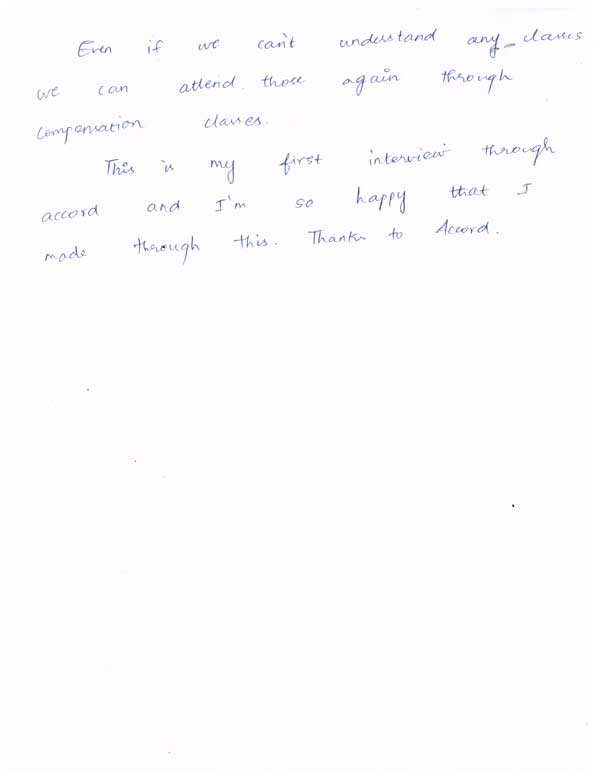 Even if we can't understand any classes
we can attend those again through
compensation classes.
This is my first interview through
accord and I'm so happy that I
made through this. Thanks to Accord.